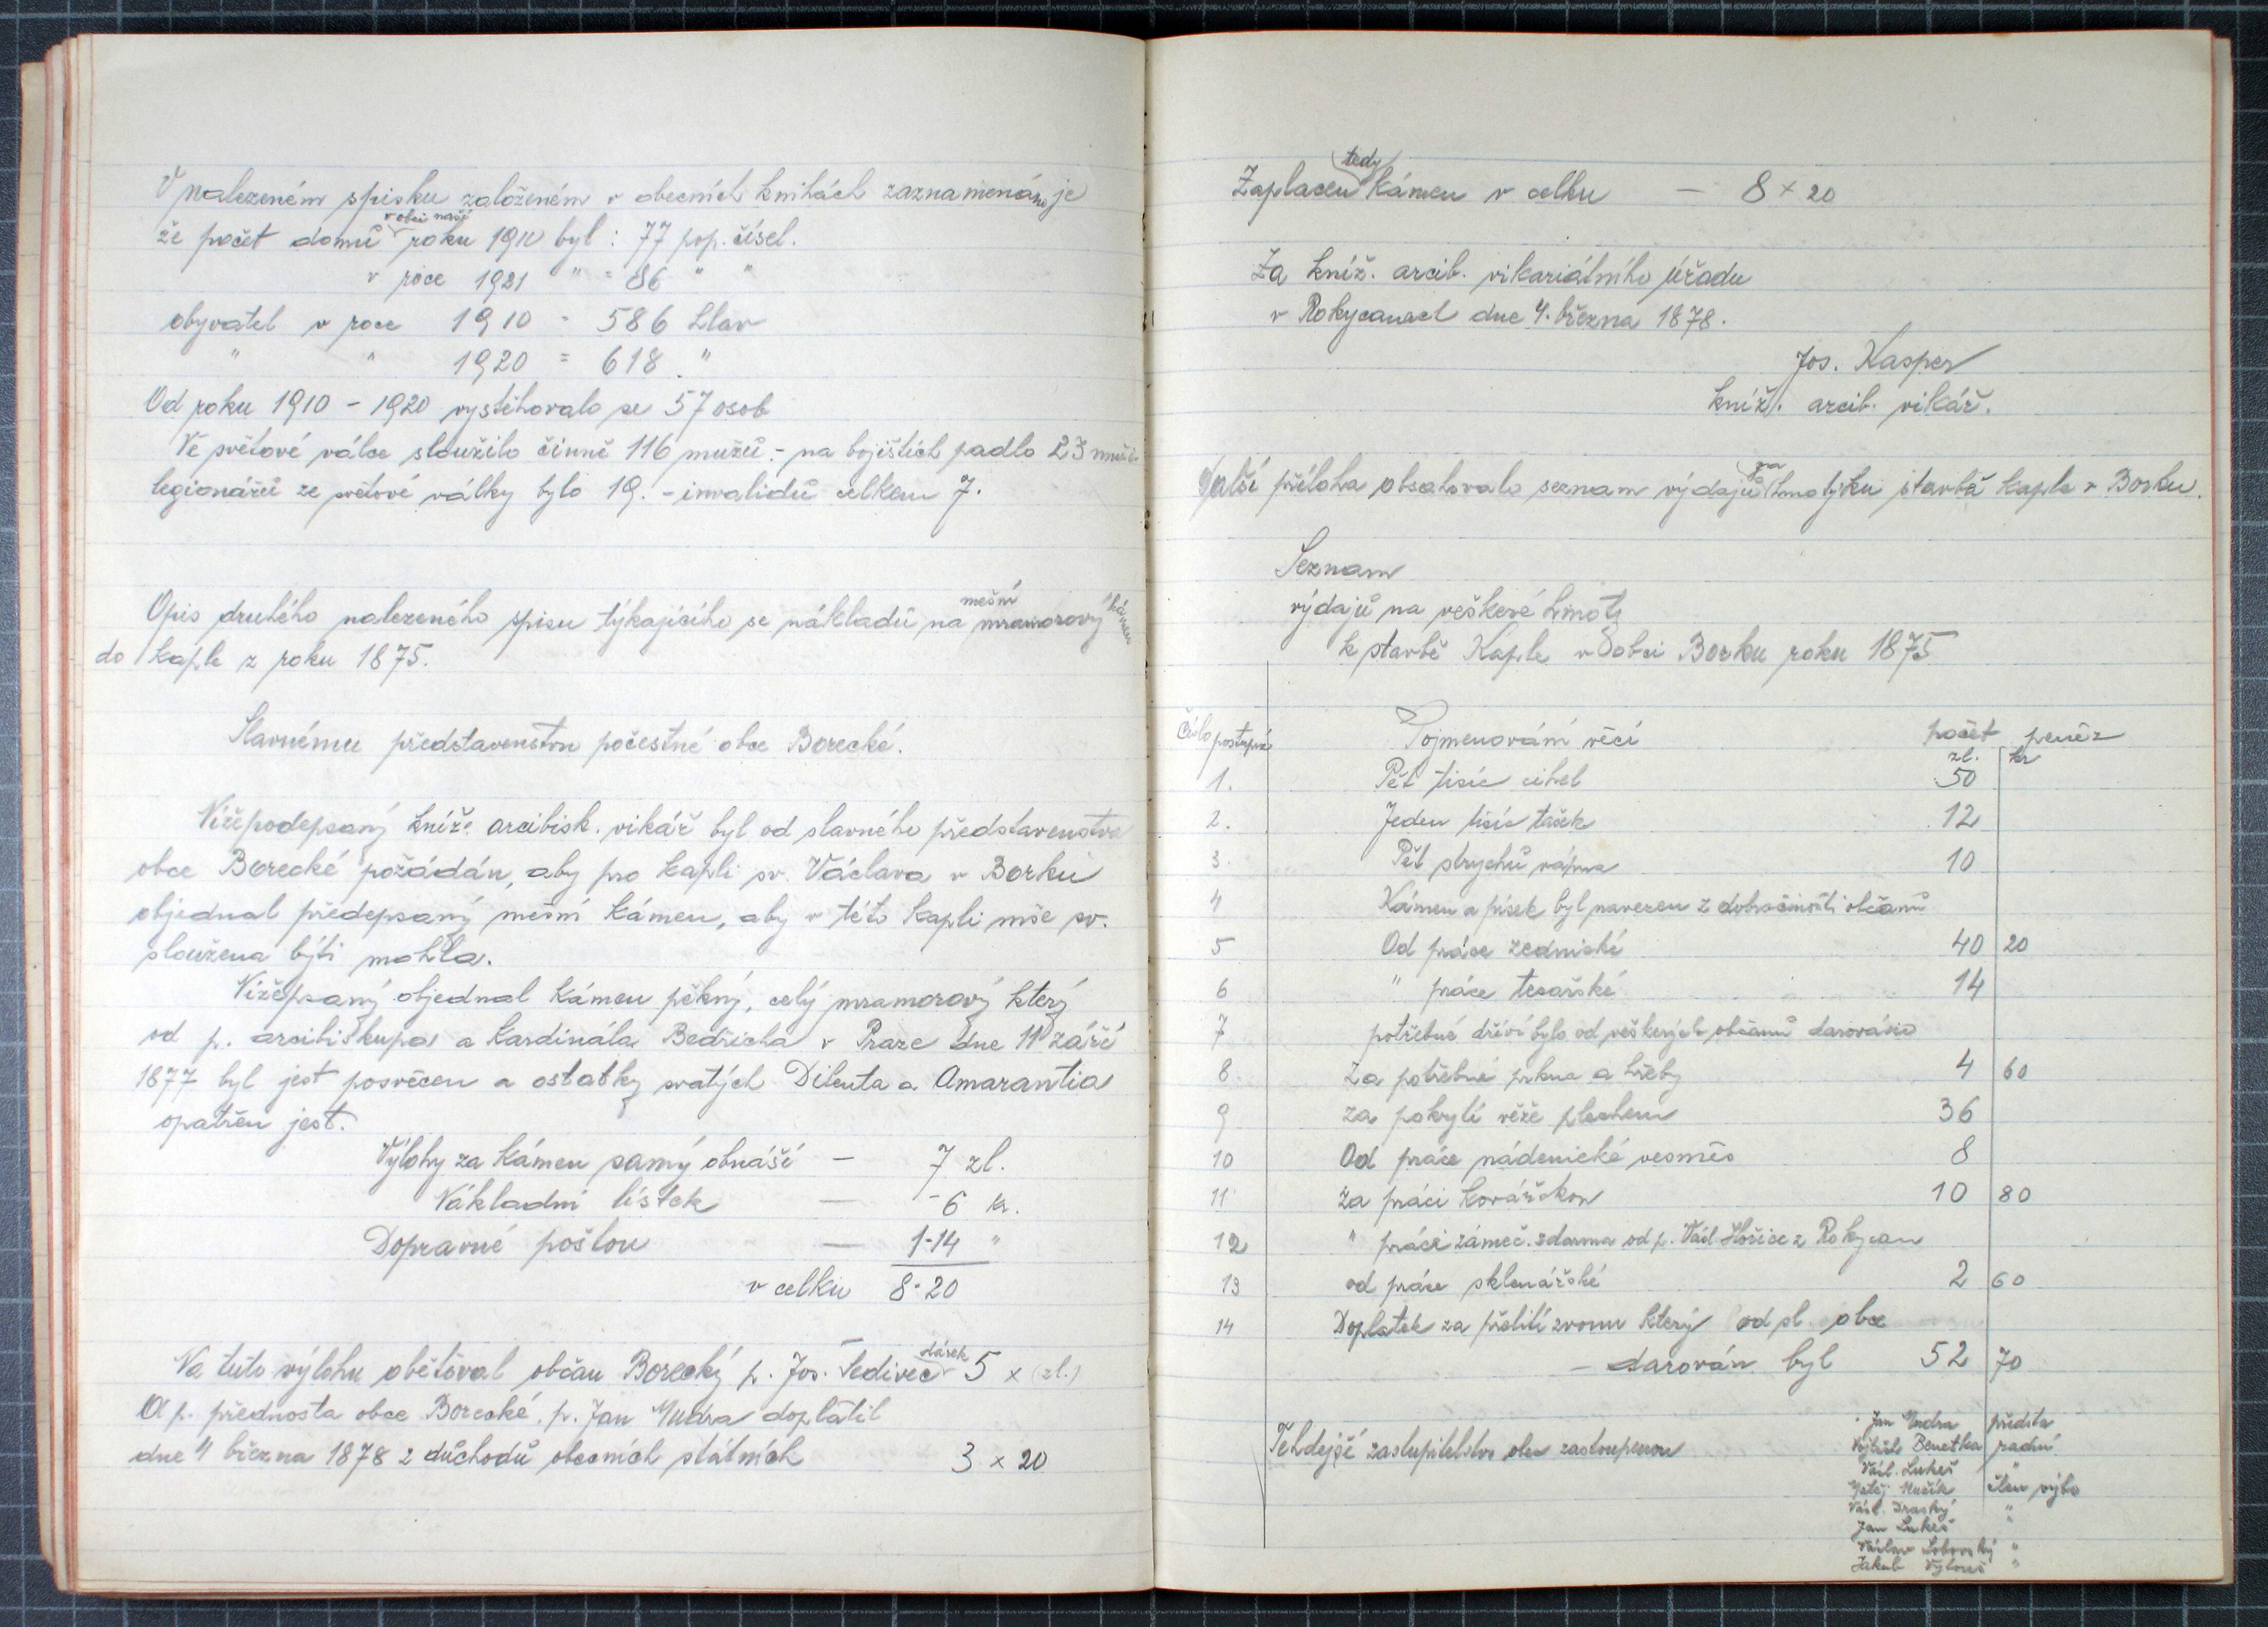 V nalezeném spisku založeném v obecních knihách zaznamenáno je
že počet domů v obci naší roku 1910 byl : 77 pop. čísel.
v roce 1921 " = 86 " "
obyvatel v roce 1910 = 586 hlav
" " 1920 = 618 "
Od roku 1910 - 1920 vystěhovalo se 57 osob
Ve světové válce sloužilo činně 116 mužů. - na bojištích padlo 23 mužů
legionářů ze světové války bylo 19. - invalidů celkem 7.
Opis druhého nalezeného spisu týkajícího se nákladů na mešní mramorový kámen
do kaple z roku 1875.
Slavnému představenstvu počestné obce Borecké.
Nížepodepsaný kníže arcibisk. vikář byl od slavného představenstva
obce Borecké požádán, aby pro kapli sv. Václava v Borku
objednal předepsaný mešní kámen, aby v této kapli mše sv.
sloužena býti mohla.
Nížepsaný objednal kámen pěkný, celý mramorový který
od p. arcibiskupa a kardinála Bedřicha v Praze dne 11 září
1877 byl jest posvěcen a ostatky svatých Dilenta a Amarantia
opatřen jest.
Výlohy za kámen samý obnáší — 7 zl.
Nákladní lístek — - 6 kr.
Dopravné poštou — 1-14 "
v celku 8-20
Na tuto výlohu obětoval občan Borecký p. Jos. Šedivec dárek 5 x (zl.)
A p. přednosta obce Borecké, p. Jan Mudra doplatil
dne 4 března 1878 z důchodů obecních státních 3 x 20
Zaplacen tedy kámen v celku — 8 x 20
Za kníž. arcib. vikariátního úřadu
v Rokycanech dne 4. března 1878.
Jos. Kasper
kníž. arcib. vikář.
Další příloha obsahovala seznam výdajů na hmoty ku stavbě kaple v Borku.
Seznam
výdajů na veškeré hmoty
k stavbě Kaple v obci Borku roku 1875
Číslo postupné Pojmenování věcí počet peněz
zl. kr
1. Pět tisíc cihel 50
2. Jeden tisíc tašek 12
3. Pět strychů vápna 10
4 Kámen a písek byl navezen z dobročinosti občanů
5 Od práce zednické 40 20
6 " práce tesařské 14
7 potřebné dříví bylo od veškerých občanů darováno
8 Za potřebné prkna a hřeby 4 60
9 za pokrytí věže plechem 36
10 Od práce nádenické vesměs 8
11 za práci kovářskou 10 80
12 " práci zámeč. zdarma od p. Václ Hořice z Rokycan
13 od práce sklenářské 2 60
14 Doplatek za přelití zvonu který od sl. obce
— darován byl 52 70
Tehdejší zastupitelstvo obce zastoupenou
Jan Mudra předsta
Vojtěch Benetka radní
Václ. Lukeš "
Matěj Mužík člen výbo
Václ. Draský "
Jan Lukeš "
Václav Lobovský "
Jakub